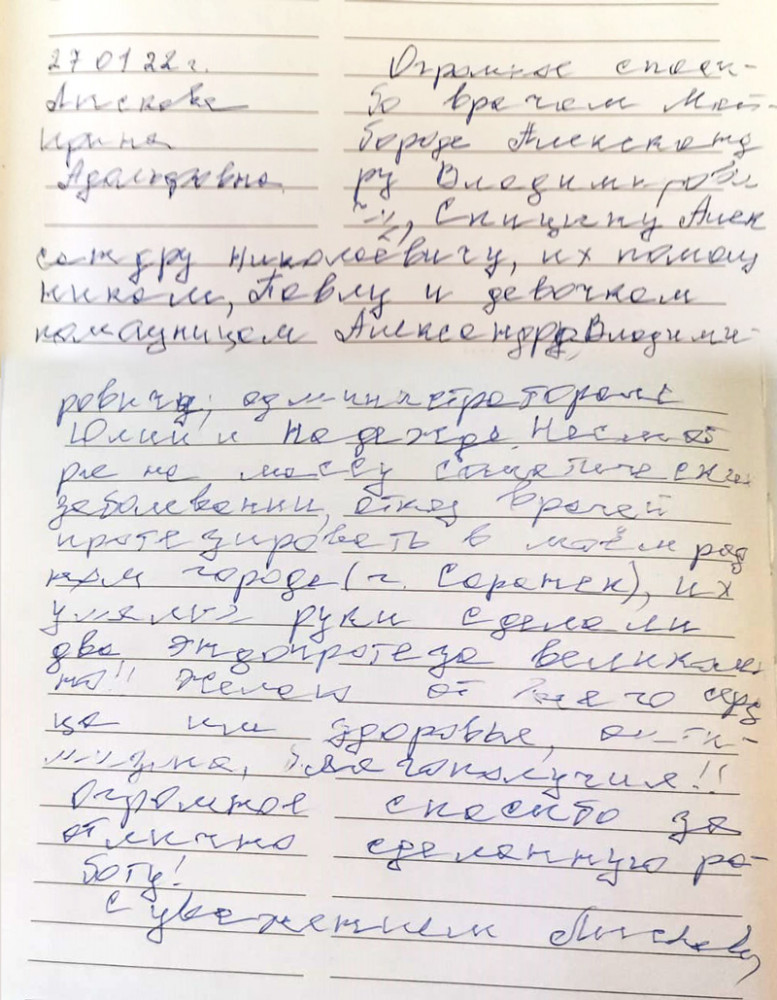 27 01 22 г.
Лискова
Ирина
Адольфовна
Огромное спаси-
бо врачам Май-
бороде Александ
ру Владимирови
чу, Спицину Алек
сандру Николаевичу, их помощ
никам, Павлу и девочкам
помощницам Александру Владими-
ровичу; администраторам:
Юлии и Надежде. Несмот
ря на массу соматических
заболеваний, отказ врачей
протезировать в моём род
ном городе (г. Саранск), их
умелые руки сделали
два эндопротеза великолеп
но!! Желаю от всего серд
ца им здоровья, опти-
мизма, благополучия!!
Огромное спасибо за
отлично сделанную ра-
боту!
С уважением Лискова